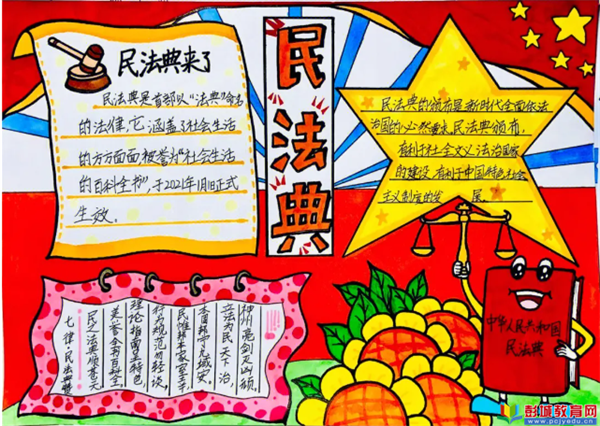 民法典来了
民法典是首部以“法典”命名
的法律,它涵盖了社会生活
的方方面面被誉为“社会生活
的百科全书”,于2021年1月1日正式
生效。
民法典
民法典的颁布是新时代全面依法
治国的必然要求,民法典颁布,
有利于社会主义法治国家
的建设,有利于中国特色社会
主义制度的发展。
七律·民法典
民之法典顺苍天
全书百科全
理论指南呈特色
行为规范勿轻谈
民惟邦本家
本固邦宁九域安
立法为民天下治
神州亮剑凶顽
中华人民共和国
民法典
彭城教育网
www.pcjyedu.cn